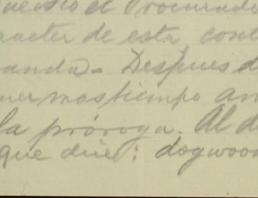 el Procurado
caracter de esta cont
anda - Despues d
mer mas tiempo an
la próroga. Al d
que dice: dogwood